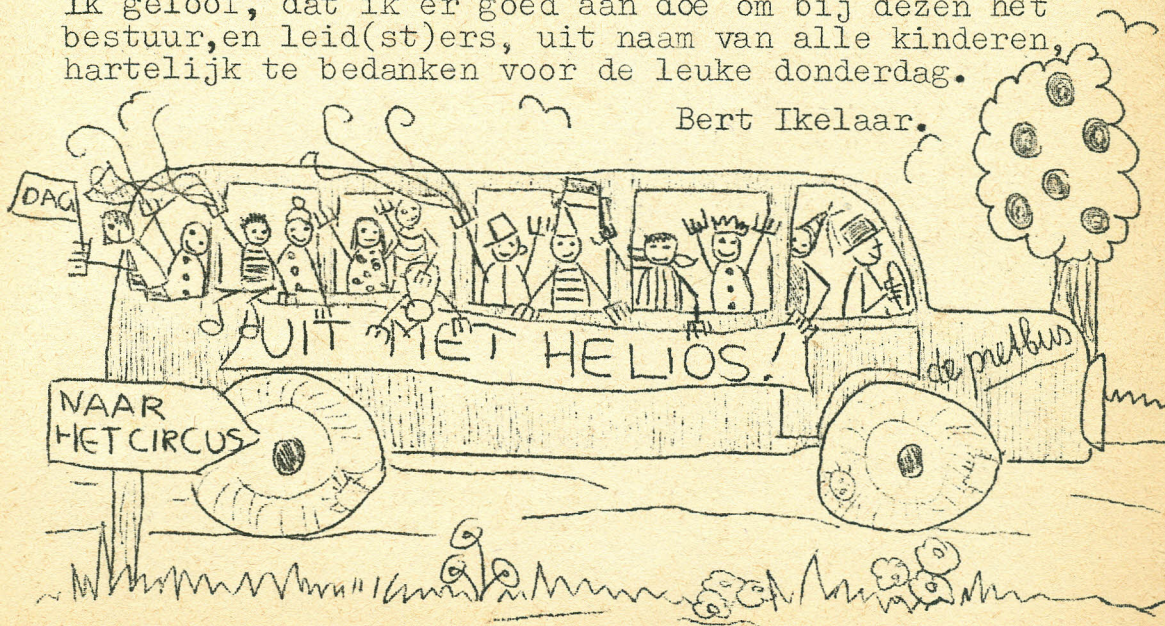 Ik geloof, dat ik er goed aan doe om bij dezen het
bestuur,en leid(st)ers, uit naam van alle kinderen,
hartelijk te bedanken voor de leuke donderdag.
Bert Ikelaar.
DAG
UIT MET HELIOS!
de pretbus
NAAR
HET CIRCUS